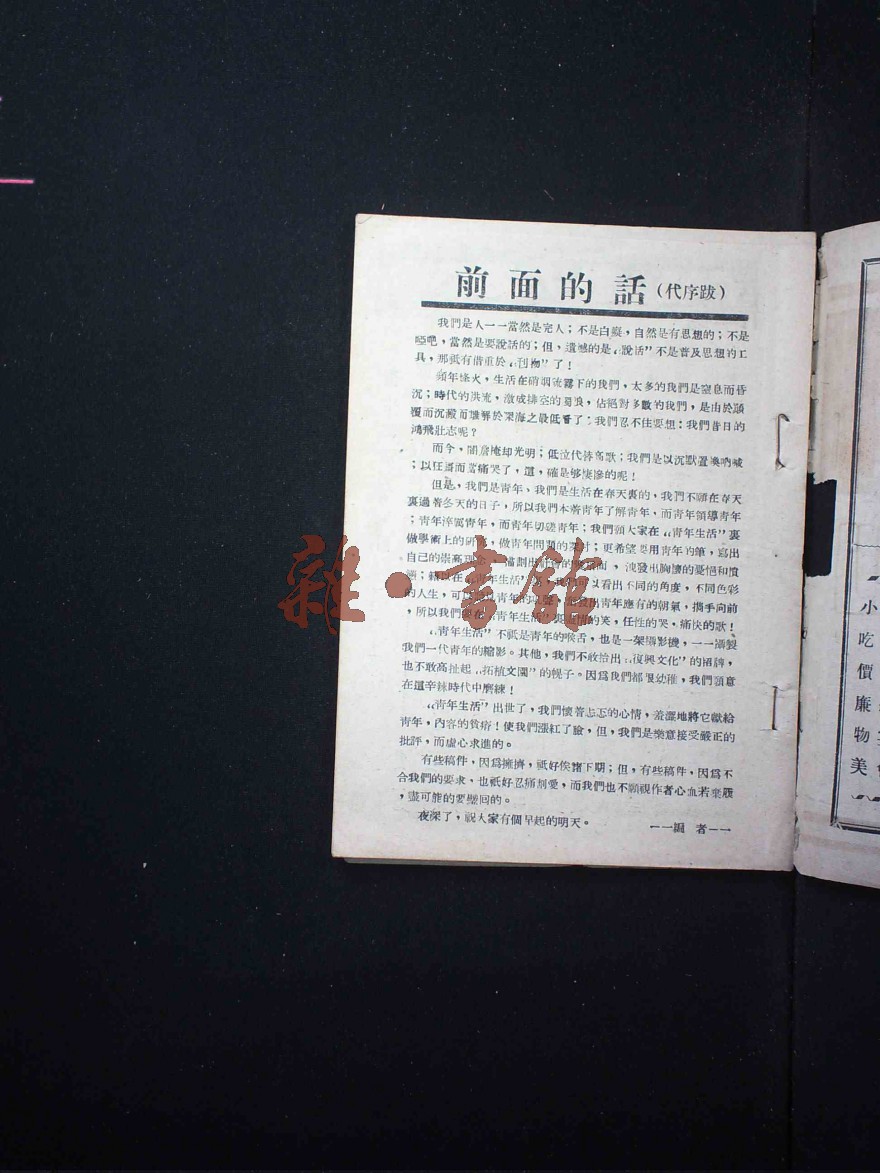 前面的話(代序跋)
我們是人——當然是完人；不是白癡，自然是有思想的；不是
啞吧，當然是要說話的；但，遺憾的是“說話”不是普及思想的工
具，那祇有借重於“刊物”了！
頻年烽火，生活在硝烟流霧下的我們，太多的我們是窒息而昏
沉；時代的洪流，激成排空的，佔絕對多數的我們，是由於
覆而沉澱而於深海之最低了；我們忍不住要想：我們昔日的
鴻飛壯志呢？
而今，闇澹掩却光明；低泣代替高歌；我們是以沉默置換吶喊
；以狂當痛哭了，這，確是够悽慘的呢！
但是，我們是青年、我們是生活在春天裏的，我們不願在春天
裏過著冬天的日子，所以我們本著青年了解青年、而青年領導青年
；青年淬青年，而青年切磋青年；我們願大家在“青年生活”裏
做學術上的研，做青年問題的探討；更希望用青年的筆，寫出
自己的崇高理念，，洩發出胸懷的憂悒和憤
在“青年生活”，我們可以看出不同的角度，不同色彩
的人生，可以青年的，發出青年應有的朝氣，携手向前
，所以我們在“青年生活”裏情的笑，任性的哭，痛快的歌！
“青年生活”不祇是青年的喉舌，也是一架攝影機，——攝製
我們一代青年的縮影。其他，我們不敢抬出“復興文化”的招牌，
也不敢高扯起“拓植文園”的幌子。因爲我們都很幼稚，我們願意
在這辛辣時代中磨練！
“青年生活”出世了，我們懷着忐忑的心情，羞澀地將它獻給
青年，內容的貧瘠！使我們漲紅了臉，但，我們是樂意接受嚴正的
批評，而虛心求進的。
有些稿件，因爲擁擠，祇好俟諸下期；但，有些稿件，因爲不
合我們的要求、也祇好忍痛割愛，而我們也不願視作者心血若棄屣
，盡可能的要壁回的。
夜深了，祝大家有個早起的明天。 ——編者——
小吃價廉物美
雜·書館